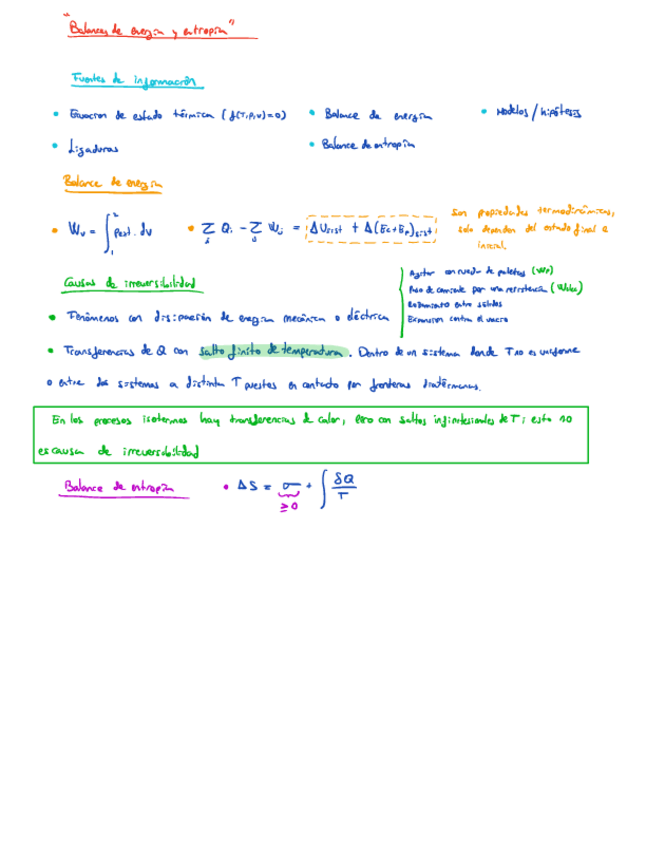 "Balances de energía y entropía"
Fuentes de información
• Ecuación de estado térmica (f(T,P,V)=0) • Balance de energía • Modelos / hipótesis
• Ligaduras • Balance de entropía
Balance de energía
• Wv = ∫₁² Pext. dV • Σ Qi - Σ Wj = ΔUsist + Δ(Ec+Ep)sist
Son propiedades termodinámicas,
solo dependen del estado final e
inicial.
Causas de irreversibilidad
• Fenómenos con disipación de energía mecánica o eléctrica
Agitar con rueda de paletas (Wp)
Paso de corriente por una resistencia (Welec)
Rozamiento entre sólidos
Expansión contra el vacío
• Transferencias de Q con salto finito de temperatura. Dentro de un sistema donde T no es uniforme
o entre dos sistemas a distinta T puestos en contacto por fronteras diatérmanas.
En los procesos isotermos hay transferencias de calor, pero con saltos infinitesimales de T; esto no
es causa de irreversibilidad
Balance de entropía • ΔS = σ + ∫ δQ/T
≥0